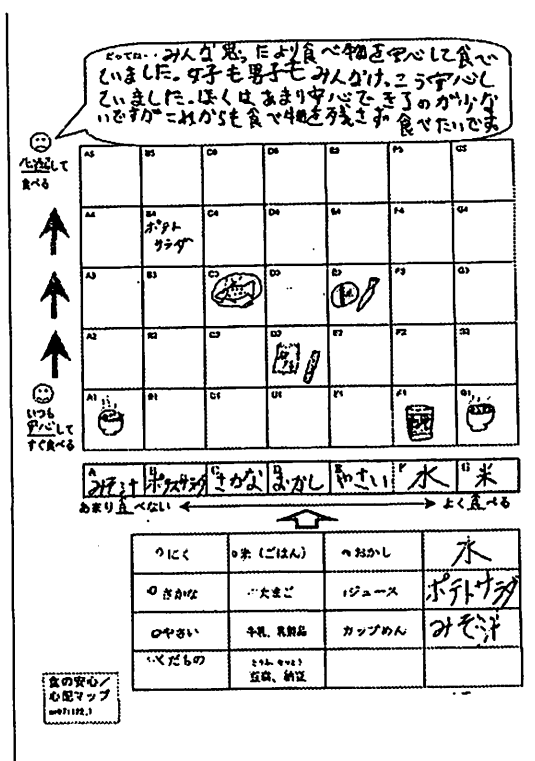 みんな思ったより食べ物を安心して食べ
ていました。女子も男子もみんなけっこう安心し
ていました。ぼくはあまり安心できるのが少な
いですがこれからも食べ物を残さず食べたいです
心配して
食べる
A5 B5 C5 D5 E5 F5 G5
A4 B4 C4 D4 E4 F4 G4
ポテト
サラダ
A3 B3 C3 D3 E3 F3 G3
A2 B2 C2 D2 E2 F2 G2
A1 B1 C1 D1 E1 F1 G1
いつも
安心して
すぐ食べる
A みそ汁 B ポテトサラダ C さかな D おかし E やさい F 水 G 米
あまり食べない よく食べる
にく 米（ごはん） おかし 水
さかな たまご ジュース ポテトサラダ
やさい 牛乳、乳製品 カップめん みそ汁
くだもの 豆腐、納豆
食の安心／
心配マップ